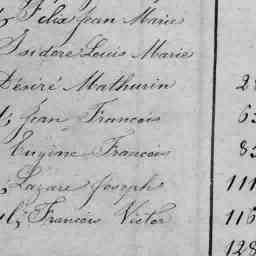 Felix Jean Marie
Isidore Louis Marie
Désiré Mathurin
Jean Francois
Eugène Francois
Lazare Joseph
Francois Victor
111
116
128